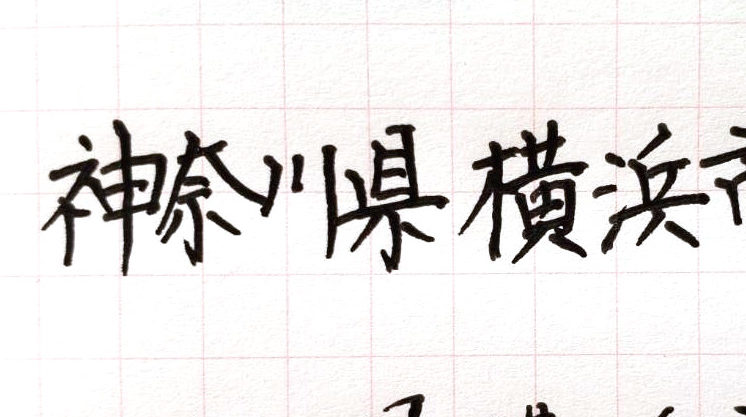 神奈川県横浜